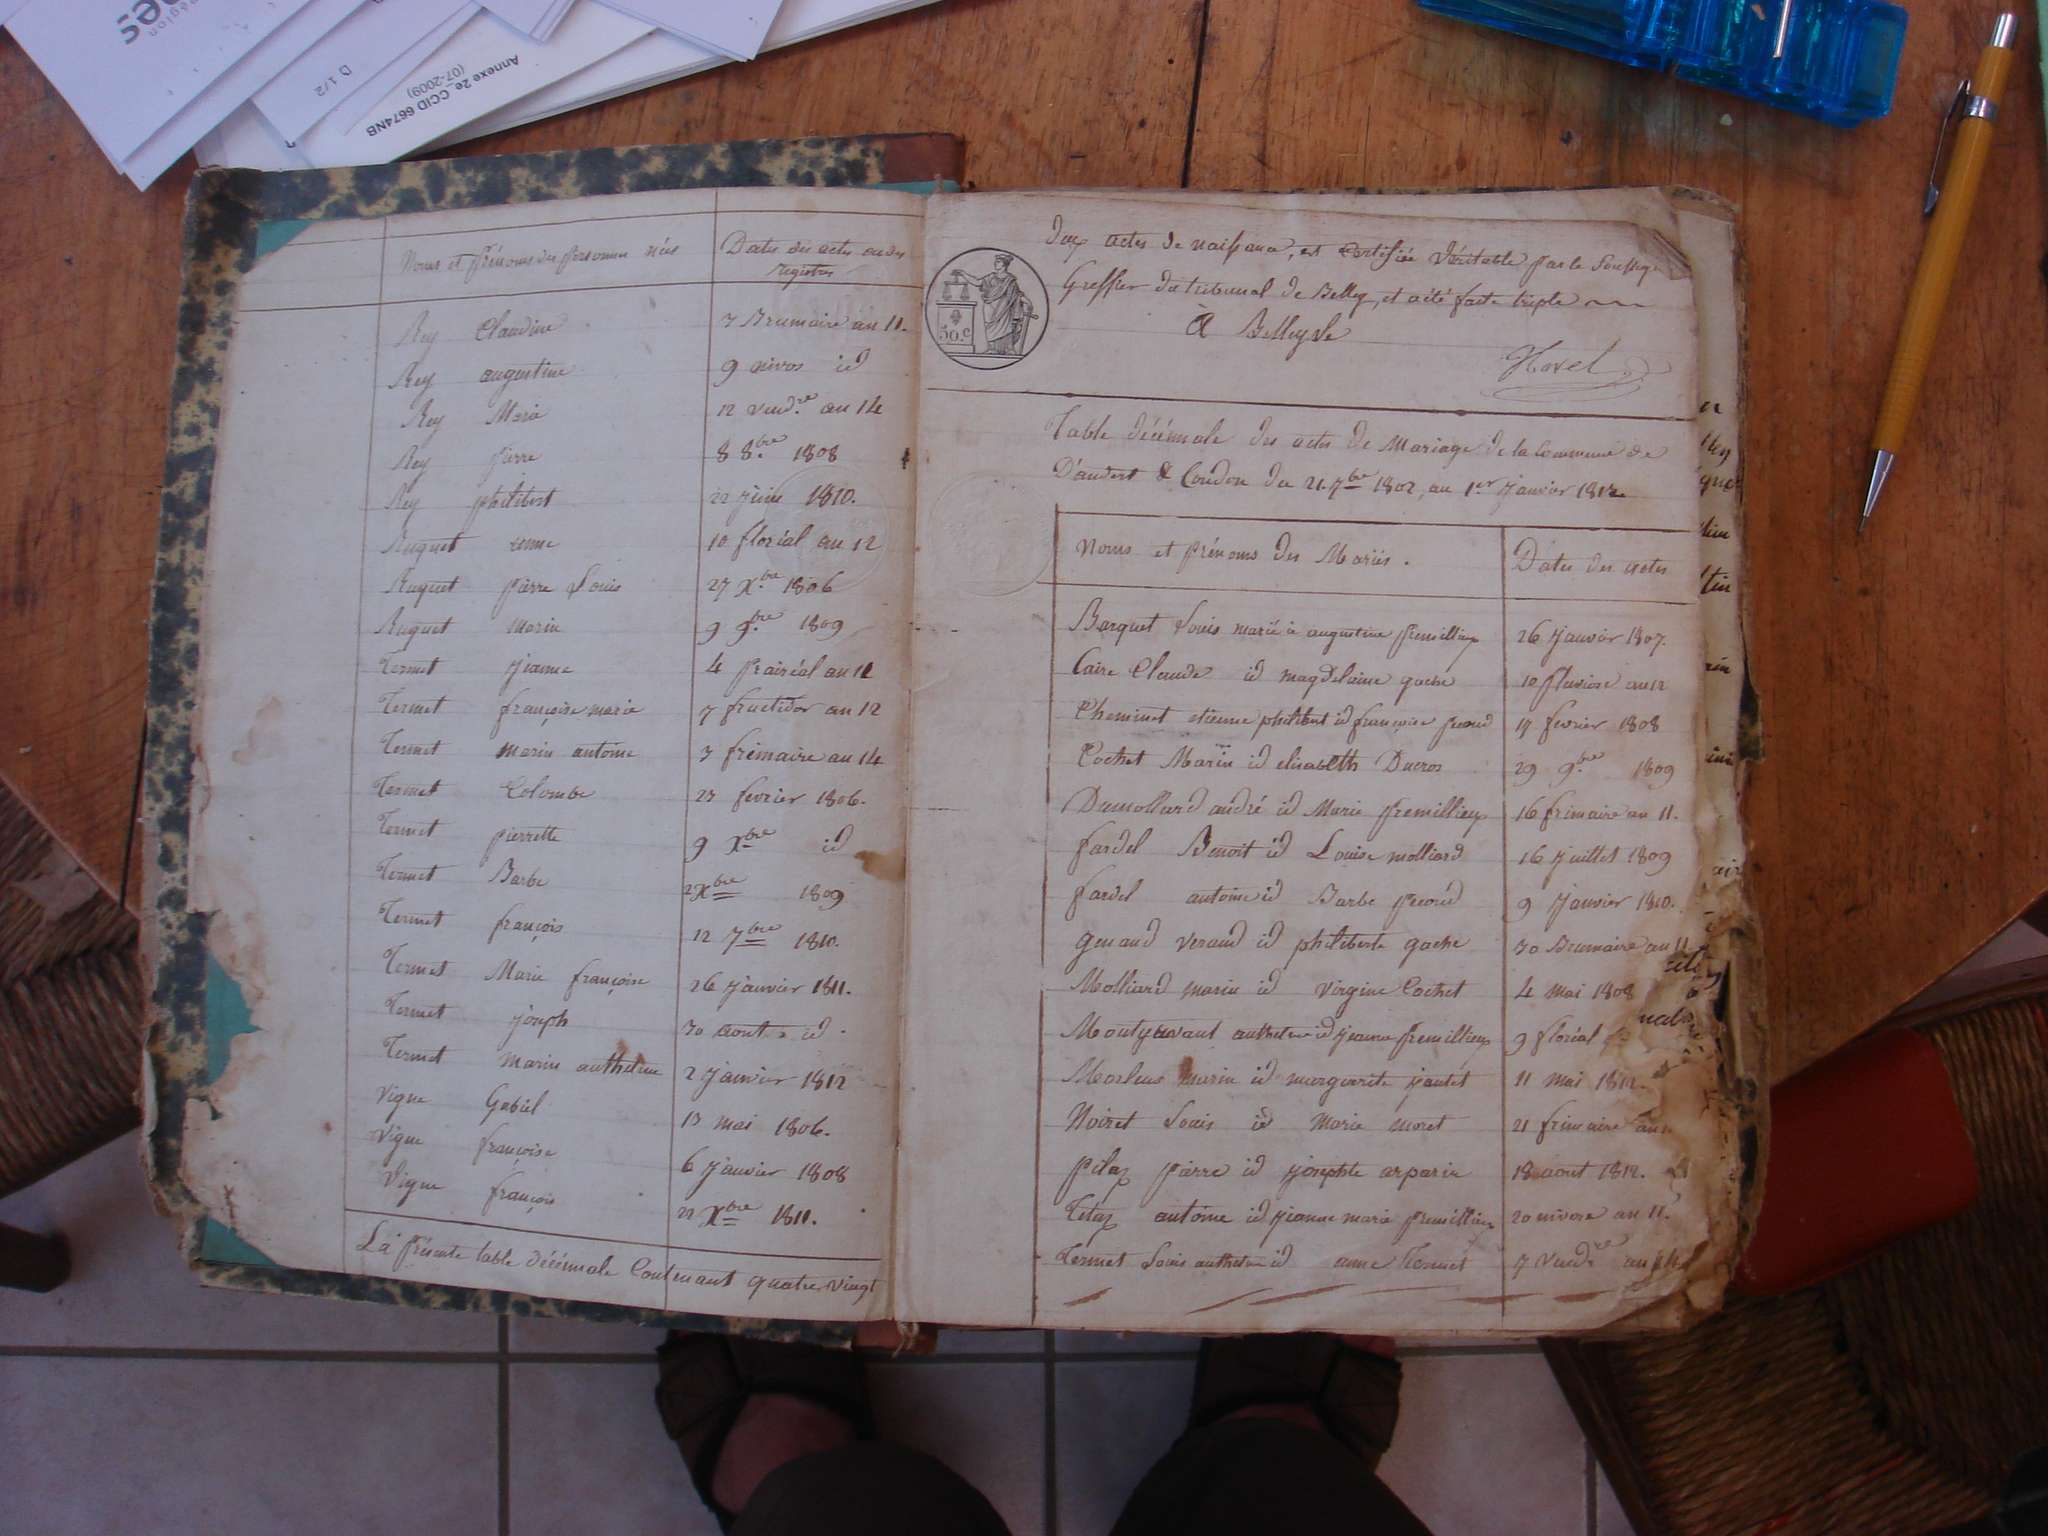 Annexe 2e_CCID 6674NB
(07-2009)
D 1/2
Région
Noms et Prénoms des Personnes nées
Dates des actes ou des
registres
Rey Claudine 7 Brumaire an 11.
Rey augustine 9 nivos id
Rey Marie 12 vend.re an 14
Rey pierre 8 8.bre 1808
Rey philibert 22 juin 1810.
Ruguet anne 10 floréal an 12
Ruguet pierre Louis 27 X.bre 1806
Ruguet Marie 9 9.bre 1809
Termet jeanne 4 prairéal an 11
Termet françoise marie 7 fructidor an 12
Termet marin antoine 3 frimaire an 14
Termet Colombe 23 fevrier 1806.
Termet pierrette 9 Xbre id
Termet Barbe 2 Xbre 1809
Termet françois 12 7bre 1810.
Termet Marie françoise 26 janvier 1811.
Termet joseph 30 aout id.
Termet marin anthelme 2 janvier 1812
Vigne Gabriel 13 mai 1806.
Vigne françoise 6 janvier 1808
Vigne françois 22 Xbre 1811.
La présente table décénnale Contenant quatre vingt
dix actes de naissance, est certifiée véritable par le soussigné
Greffier du tribunal de Belley, et a été faite triple
A Belley le
50.c
Table décénnale des actes de Mariage de la Commune de
D'andert & Condon du 21.7bre 1802, au 1er janvier 1812
Noms et prénoms des Mariés. Dates des actes
Barquet Louis marié à augustine premillieux 26 janvier 1807.
Caire Claude id magdelaine gache 10 pluviose an 12
Cheminet etienne philibert id françoise 11 fevrier 1808
Cochet Marin id elisabeth Ducros 29 9.bre 1809
Dumolliard andré id Marie premillieux 16 frimaire an 11.
fardel Benoit id Louise molliard 16 juillet 1809
fardel antoine id Barbe 9 janvier 1810.
genaud id philiberte gache 30 Brumaire an 11
Molliard marin id virginie Cochet 4 mai 1808
anthelme id jeanne premillieux 9 floréal
marin id marguerite jantet 11 mai 1812.
Noiret Louis id Marie moret 21 frimaire an
pilaz pierre id josephte arparin 18 aout 1812.
antoine id jeanne marie premillieux 20 nivose an 11.
Termet Louis anthelme id anne Termet 7 Vendre an 14